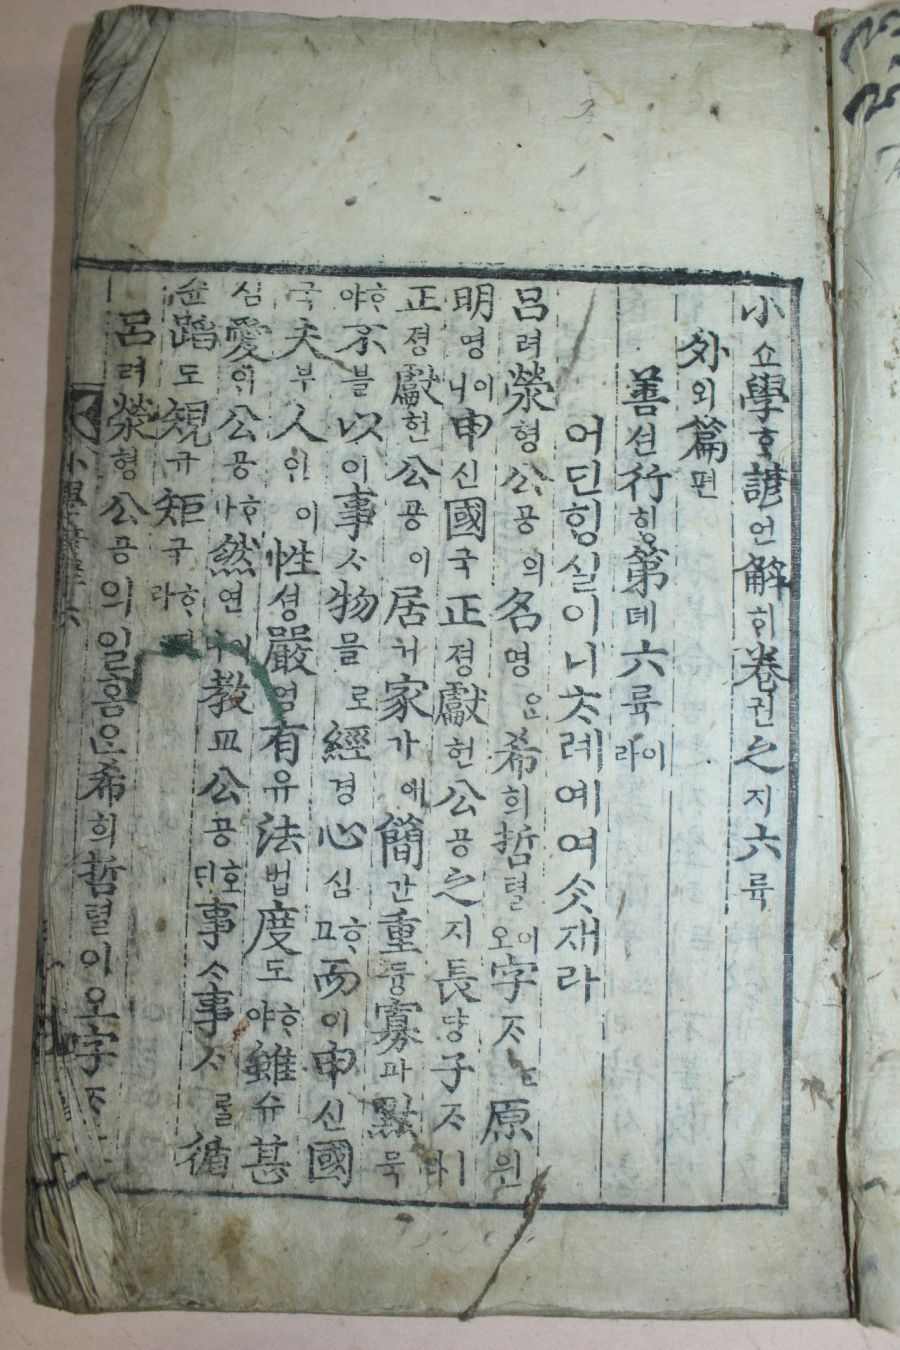 小쇼學ᄒᆞᆨ諺언解ᄒᆡ卷권之지六륙
外외篇편
善션行ᄒᆡᆼ第뎨六륙이라
어딘ᄒᆡᆼ실이니ᄎᆞ례예여ᄉᆞᆺ재라
呂려滎형公공의名명은希희哲텰이오字ᄌᆞᄂᆞᆫ原원
明명이니申신國국正졍獻헌公공之지長댱子ᄌᆞㅣ라
正졍獻헌公공이居거家가에簡간重듕寡과默묵
ᄒᆞ야不블以이事ᄉᆞ物믈로經경心심ᄒᆞ고而이申신國
국夫부人인이性셩嚴엄有유法법度도ᄒᆞ야雖슈甚
심愛ᄋᆡ公공ᄒᆞ나然연이나敎교公공호ᄃᆡ事ᄉᆞ事ᄉᆞ를循
슌蹈도規규矩구ᄒᆞ더라
呂려滎형公공의일홈은希희哲텰이오字ᄌᆞ